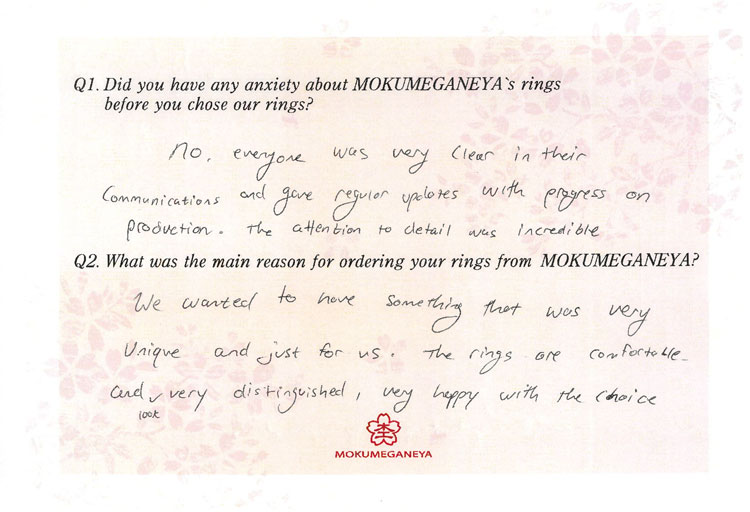 Q1. Did you have any anxiety about MOKUMEGANEYA`s rings
before you chose our rings?
No, everyone was very clear in their
communications and gave regular updates with progress on
production. The attention to detail was incredible
Q2. What was the main reason for ordering your rings from MOKUMEGANEYA?
We wanted to have something that was very
unique and just for us. The rings are comfortable
and look very distinguished, very happy with the choice
MOKUMEGANEYA